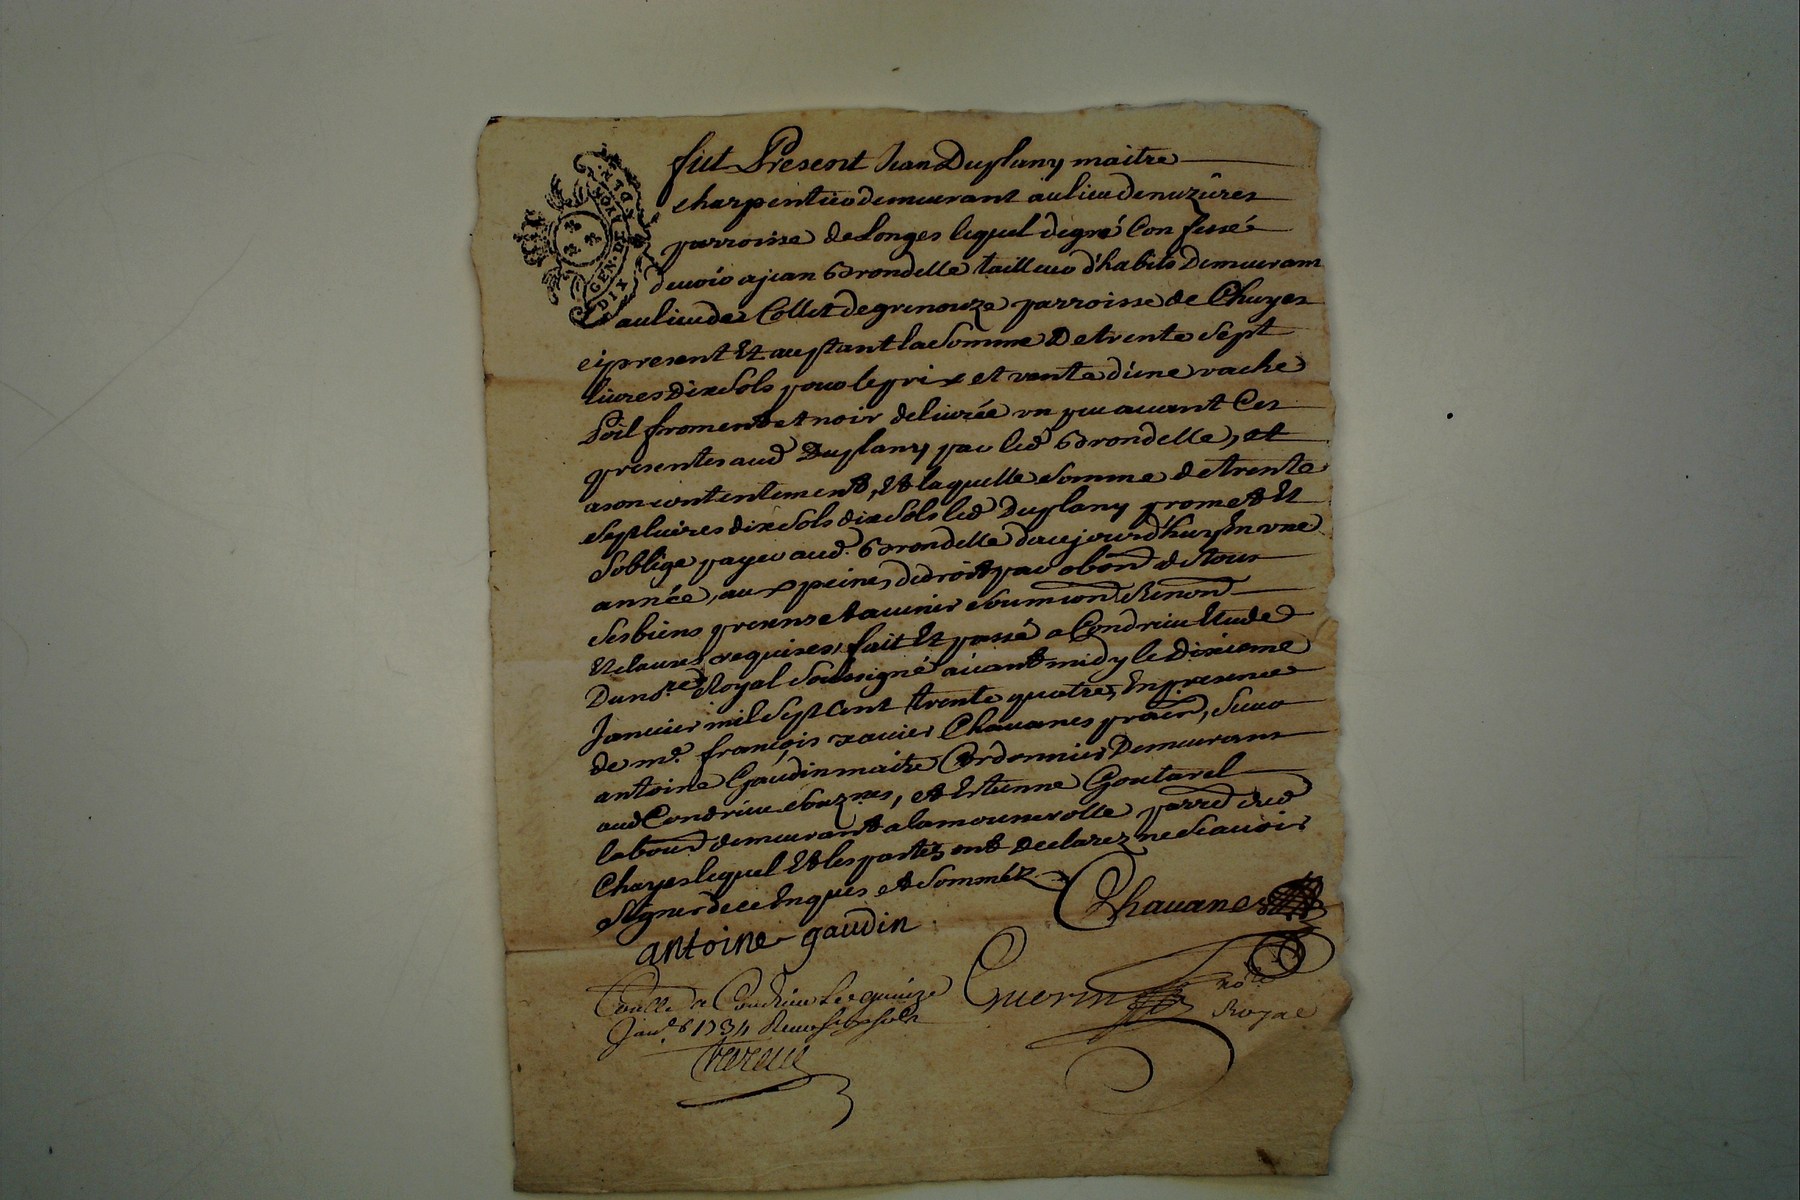 GEN. DE LYON
DIX DEN.
fut Present Jean Duplany maitre
charpentier demeurant au lieu de nuzieres
parroisse de Longes lequel de gré Confesse
devoir a jean Brondelle tailleur d'habits Demeurant
au lieu de Collet de grenouze parroisse de Chuyes
cy present Et acceptant la Somme De trente Sept
livres Dix Sols pour le prix et vente d'une vache
Poil froment et noir delivrée un peu avant Ces
presentes aud Duplany par led Brondelle, et
a son contentement, Et laquelle Somme de trente
Sept livres dix Sols dix Sols led Duplany promet Et
S'oblige payer aud. Brondelle d'aujourd'huy En une
année, aux peines de droit par obon de tour
Ses biens presens et avenir Soumon Renon
Et clauses requises, fait Et passé a Condrieu Etude
Du nore Royal Soussigné avant midy le dixieme
Janvier mil Sept Cent trente quatre, En presence
de me. françois xavier Chavanes praen, Sieur
antoine Gaudin maitre Cordonnier Demeurant
aud Condrieu, et Estienne Goutarel
labour demeurant a la mounerolle parred dud
Chuyes lequel Et les parties ont declarez ne Scavoir
Signer de ce Enquis et Sommés
Chavanes
antoine gaudin
Guerin nore
Royal
Conllé a Condrieu Le quinze
Janer 1734 Reçu